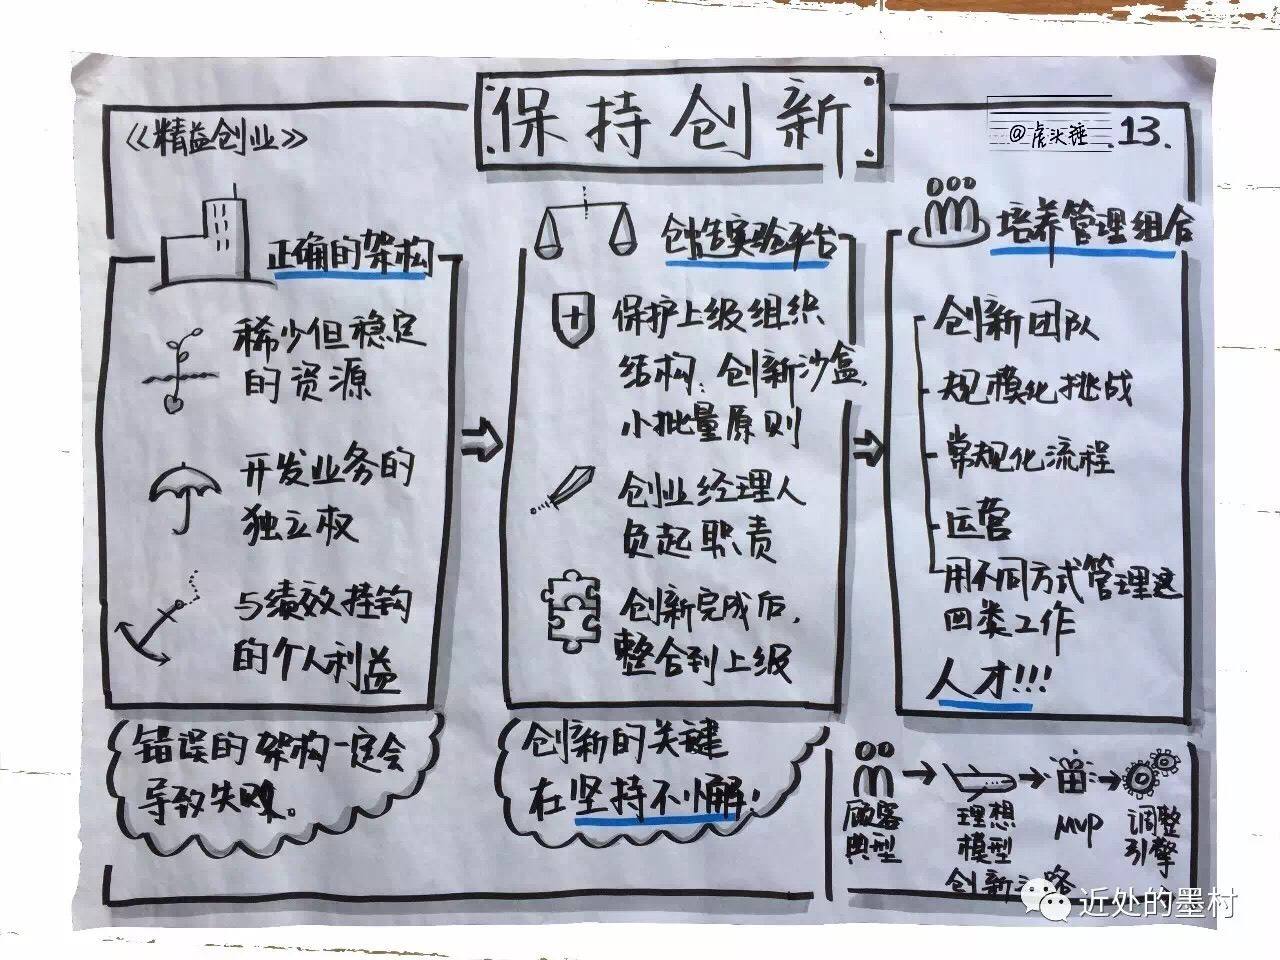 《精益创业》
保持创新
@虎头锤
13.
正确的架构
稀少但稳定
的资源
开发业务的
独立权
与绩效挂钩
的个人利益
错误的架构一定会
导致失败。
创造实验平台
保护上级组织
结构：创新沙盒，
小批量原则
创业经理人
负起职责
创新完成后，
整合到上级
创新的关键
在坚持不懈！
培养管理组合
创新团队
规模化挑战
常规化流程
运营
用不同方式管理这
四类工作
人才!!!
顾客
典型
理想
模型
MVP
调整
引擎
创新
近处的墨村